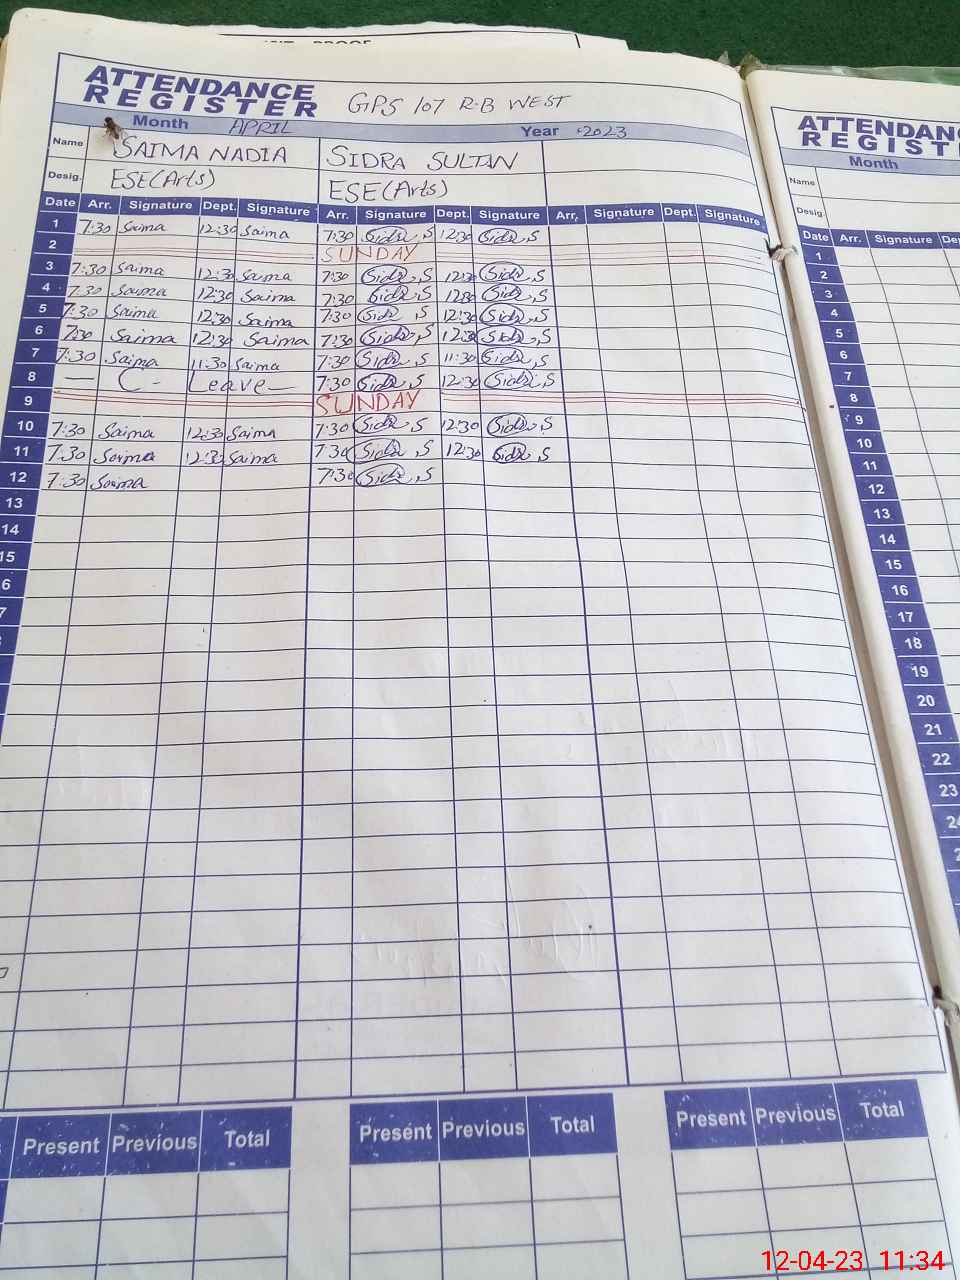 ATTENDANCE
REGISTER GPS 107 R.B WEST
Month APRIL Year 2023
Name SAIMA NADIA SIDRA SULTAN
Desig. ESE(Arts) ESE(Arts)
Date Arr. Signature Dept. Signature Arr. Signature Dept. Signature Arr. Signature Dept. Signature
1 7:30 Saima 12:30 Saima 7:30 Sidra,S 12:30 Sidra,S
2 SUNDAY
3 7:30 Saima 12:30 Saima 7:30 Sidra,S 12:30 Sidra,S
4 7:30 Saima 12:30 Saima 7:30 Sidra,S 12:30 Sidra,S
5 7:30 Saima 12:30 Saima 7:30 Sidra,S 12:30 Sidra,S
6 7:30 Saima 12:30 Saima 7:30 Sidra,S 12:30 Sidra,S
7 7:30 Saima 11:30 Saima 7:30 Sidra,S 11:30 Sidra,S
8 — C- Leave — 7:30 Sidra,S 12:30 Sidra,S
9 SUNDAY
10 7:30 Saima 12:30 Saima 7:30 Sidra,S 12:30 Sidra,S
11 7:30 Saima 12:30 Saima 7:30 Sidra,S 12:30 Sidra,S
12 7:30 Saima 7:30 Sidra,S
13
14
15
6
7
Present Previous Total Present Previous Total Present Previous Total
ATTENDAN
REGISTER
Month
Name
Desig.
Date Arr. Signature
1
2
3
4
5
6
7
8
9
10
11
12
13
14
15
16
17
18
19
20
21
22
23
12-04-23 11:34